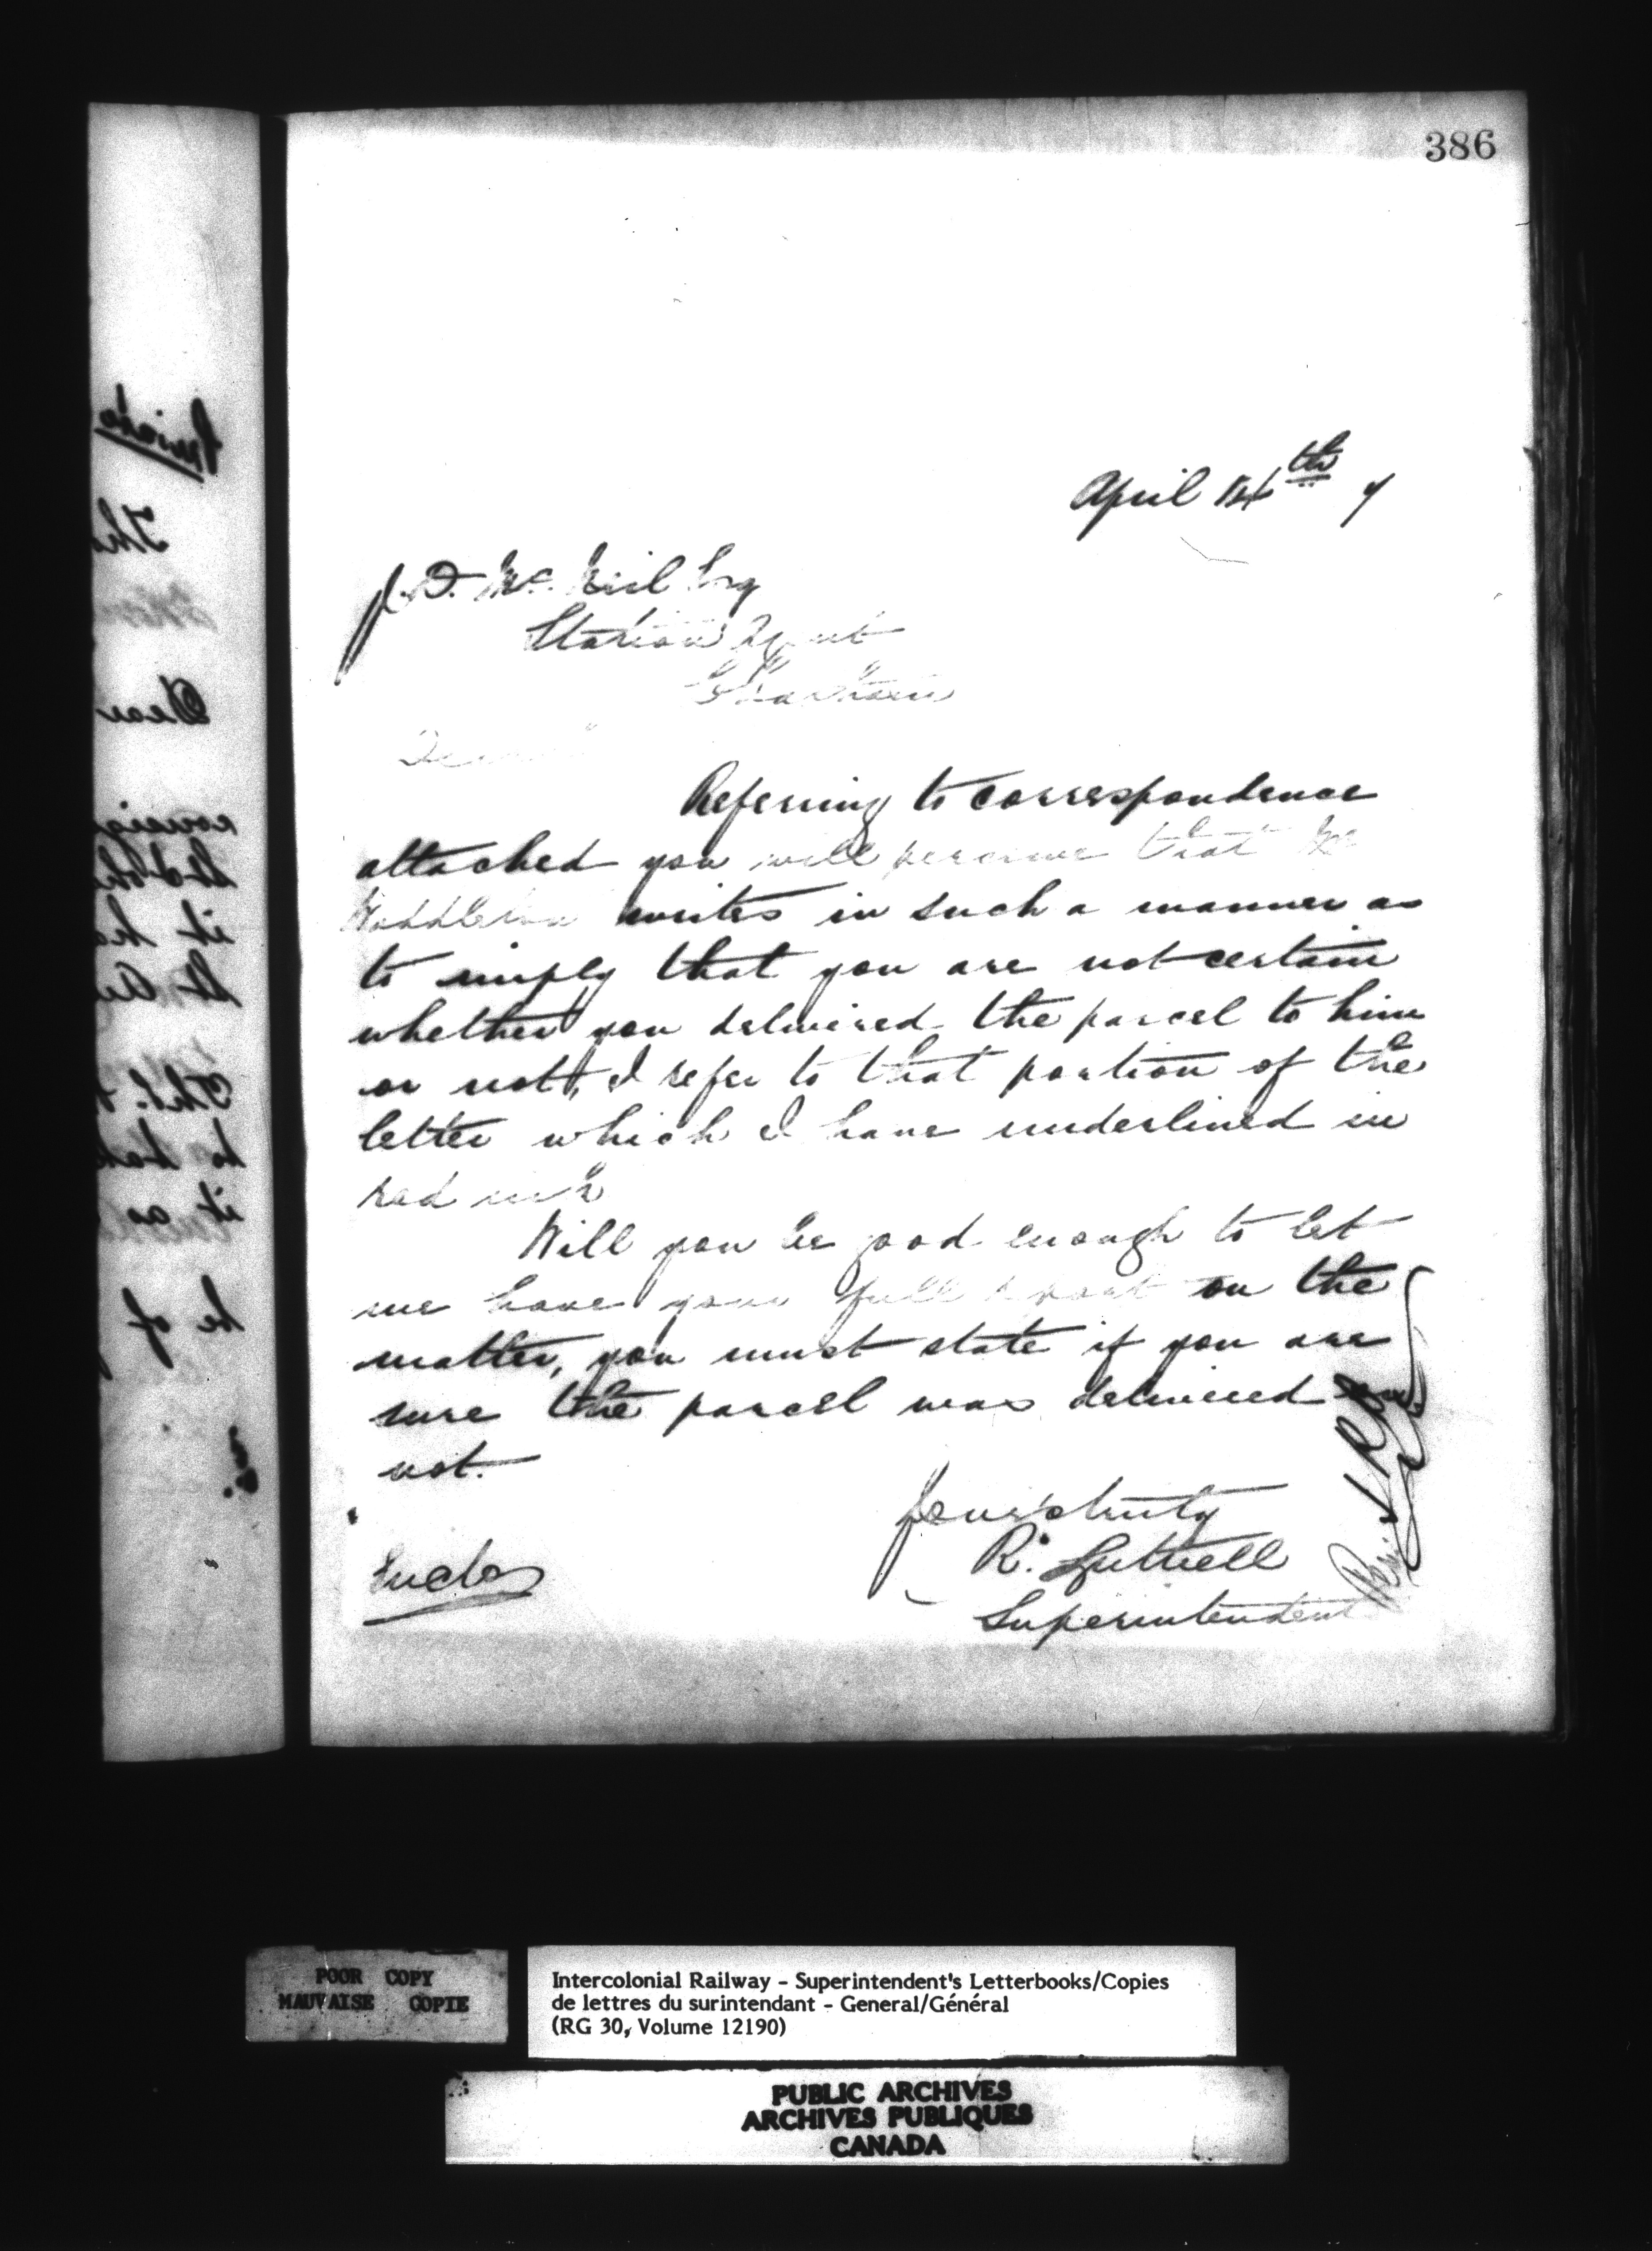 386
April 14th 7
J. D. McNeil Esq
Station Agent
Dear
Referring to correspondence
attached you will perceive that Mr
writes in such a manner as
to imply that you are not certain
whether you delivered the parcel to him
or not, I refer to that portion of the
letter which I have underlined in
red ink
Will you be good enough to let
me have your full report on the
matter, you must state if you are
sure the parcel was delivered or
not.
Yours truly
R. Luttrell
Superintendent
Enclo
Private
The
Dear
it
to
it as
be of
POOR COPY
MAUVAISE COPIE
Intercolonial Railway - Superintendent's Letterbooks/Copies
de lettres du surintendant - General/Général
(RG 30, Volume 12190)
PUBLIC ARCHIVES
ARCHIVES PUBLIQUES
CANADA